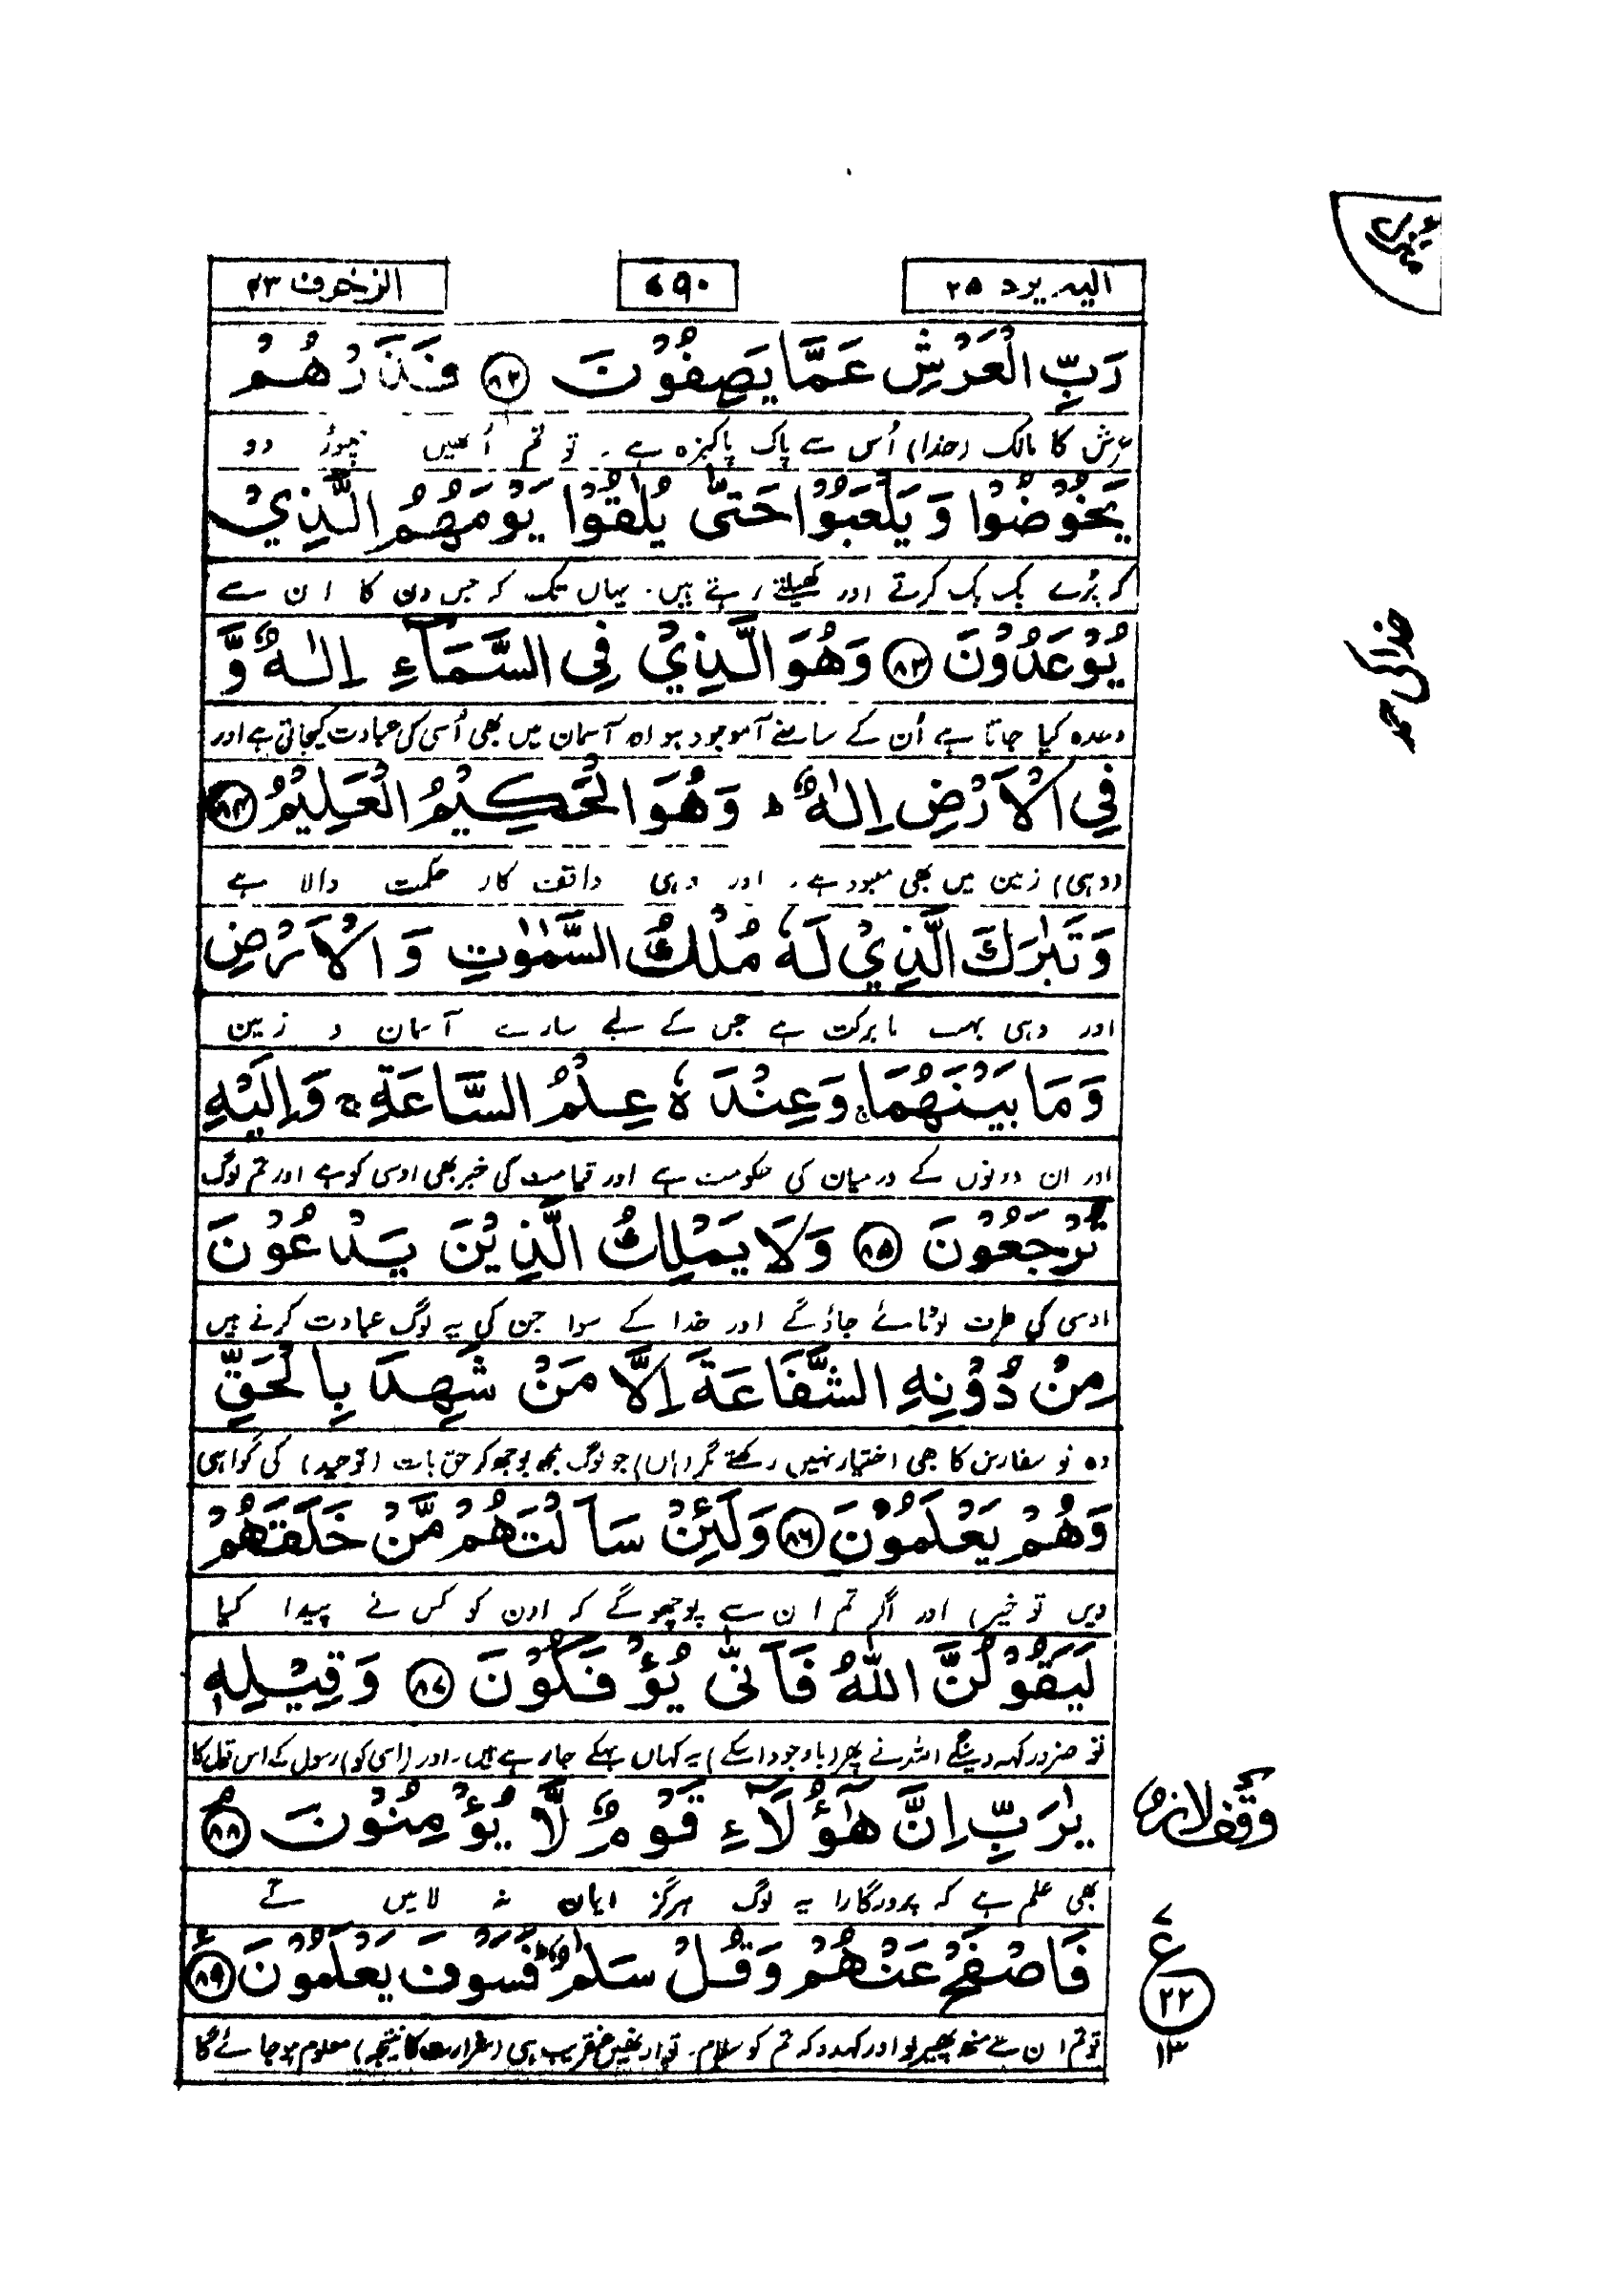 الیہ یرد ۲۵
۷۹۰
الزخرف ۴۳
رَبِّ الْعَرْشِ عَمَّا يَصِفُوْنَ ﴿۸۲﴾ فَذَرْهُمْ
عرش کا مالک (خدا) اُس سے پاک پاکیزہ ہے ۔ تو تم اُنھیں چھوڑ دو
يَخُوْضُوْا وَيَلْعَبُوْا حَتّٰى يُلٰقُوْا يَوْمَهُمُ الَّذِيْ
کہ پڑے بک بک کرتے اور کھیلتے رہتے ہیں ۔ یہاں تک کہ جس دن کا ان سے
يُوْعَدُوْنَ ﴿۸۳﴾ وَهُوَ الَّذِيْ فِي السَّمَآءِ اِلٰهٌ وَّ
وعدہ کیا جاتا ہے اُن کے سامنے آموجود ہو اور آسمان میں بھی اُسی کی عبادت کیجاتی ہے اور
فِي الْاَرْضِ اِلٰهٌ ؕ وَهُوَ الْحَكِيْمُ الْعَلِيْمُ ﴿۸۴﴾
(وہی) زمین میں بھی معبود ہے ۔ اور وہی واقف کار حکمت والا ہے
وَتَبٰرَكَ الَّذِيْ لَهٗ مُلْكُ السَّمٰوٰتِ وَالْاَرْضِ
اور وہی بہت بابرکت ہے جس کے لیے سارے آسمان و زمین
وَمَا بَيْنَهُمَا ۚ وَعِنْدَهٗ عِلْمُ السَّاعَةِ ۚ وَاِلَيْهِ
اور ان دونوں کے درمیان کی حکومت ہے اور قیامت کی خبر بھی اوسی کو ہے اور تم لوگ
تُرْجَعُوْنَ ﴿۸۵﴾ وَلَا يَمْلِكُ الَّذِيْنَ يَدْعُوْنَ
اوسی کی طرف لوٹائے جاؤ گے اور خدا کے سوا جن کی یہ لوگ عبادت کرتے ہیں
مِنْ دُوْنِهِ الشَّفَاعَةَ اِلَّا مَنْ شَهِدَ بِالْحَقِّ
وہ تو سفارش کا بھی اختیار نہیں رکھتے مگر (ہاں) جو لوگ سمجھ بوجھ کر حق بات (توحید) کی گواہی
وَهُمْ يَعْلَمُوْنَ ﴿۸۶﴾ وَلَئِنْ سَاَلْتَهُمْ مَّنْ خَلَقَهُمْ
دیں تو خیر) اور اگر تم ان سے پوچھو گے کہ اون کو کس نے پیدا کیا
لَيَقُوْلُنَّ اللّٰهُ فَاَنّٰى يُؤْفَكُوْنَ ﴿۸۷﴾ وَقِيْلِهٖ
تو ضرور کہہ دینگے اللہ نے پھر (باوجود اسکے) یہ کہاں بہکے جارہے ہیں ۔ اور (اسی کو) رسول کے اس قول کا
يٰرَبِّ اِنَّ هٰٓؤُلَآءِ قَوْمٌ لَّا يُؤْمِنُوْنَ ﴿۸۸﴾
بھی علم ہے کہ پروردگارا یہ لوگ ہرگز ایمان نہ لائیں گے
فَاصْفَحْ عَنْهُمْ وَقُلْ سَلٰمٌ ؕ فَسَوْفَ يَعْلَمُوْنَ ﴿۸۹﴾
تو تم ان سے منھ پھیر لو اور کہدو کہ تم کو سلام ۔ تو اونھیں عنقریب ہی (شرارت کا نتیجہ) معلوم ہو جائے گا
خدا کی حمد
وقف لازم
۷
ع
۲۲
۱۳